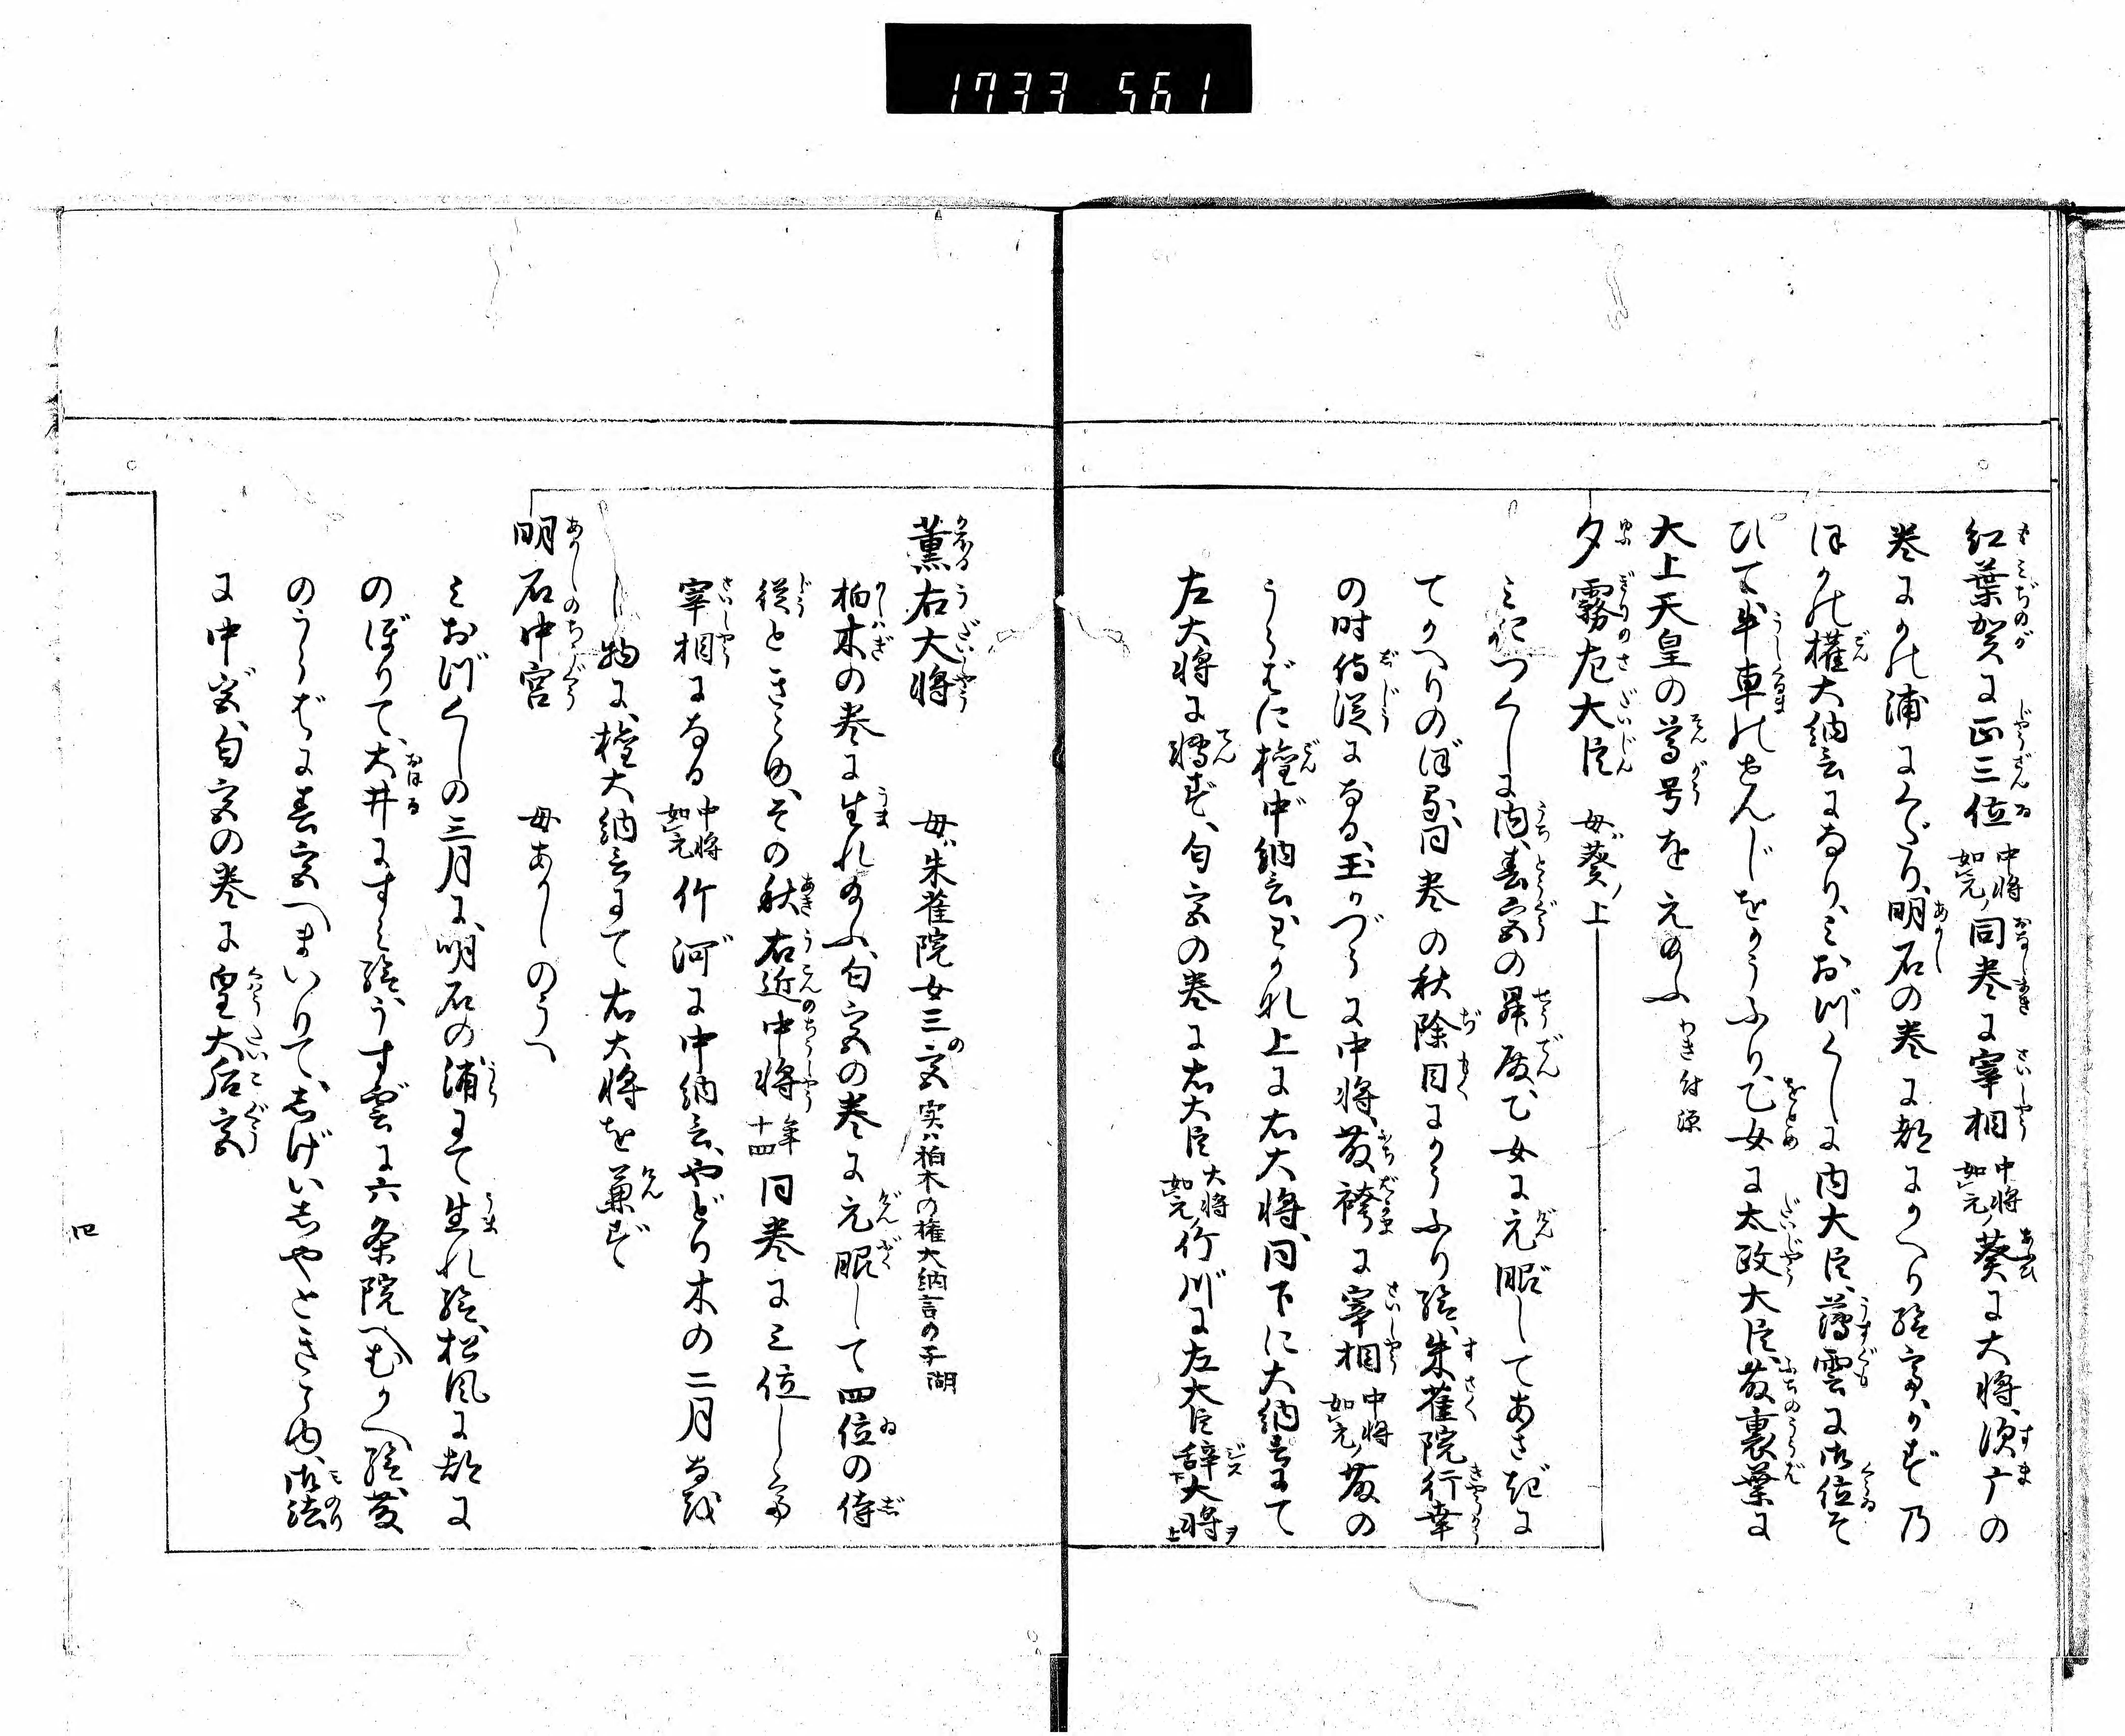 1733 561
紅葉賀に正三位中将如元同巻に宰相中将如元葵に大将須广の
巻にかの浦にくだり、明石の巻に都にかへり給ふ、かず乃
ほかの權大納言になり、みおづくしに内大臣、薄雲に御位そ
ひて牛車のせんじをかうふり、乙女に太政大臣、藤裏葉に
大上天皇の尊号をえ給ふ
夕霧左大臣 母葵ノ上
みほつくしに内、春宮の昇殿、乙女に元服してあさぎに
てかへりのぼる、同巻の秋除目にかうふり給、朱雀院行幸
の時侍従になる、玉かづらに中将、藤袴に宰相中将如元藤の
うらばに權中納言わかれ上に右大将、同下に大納言にて
左大将に轉ず、匂宮の巻に右大臣大将如元竹川に左大臣辞大将
薫右大将 母朱雀院女三宮実ハ柏木の権大納言の子
柏木の巻に生れ給ふ、匂宮の巻に元服して四位の侍
従ときこゆ、その秋右近中将年十四同巻に三位し
宰相になる中将如元竹河に中納言、やどり木の二月
し物に、權大納言にて右大将を兼ず
明石中宮 母あかしのうへ
みおづくしの三月に、明石の浦にて生れ給、松風に都に
のぼりて、大井にすみ給、うす雲に六条院へむかへ給、藤
のうらばに春宮へまいりて、しげいしやときこゆ、御法
に中宮、匂宮の巻に皇大后宮
四